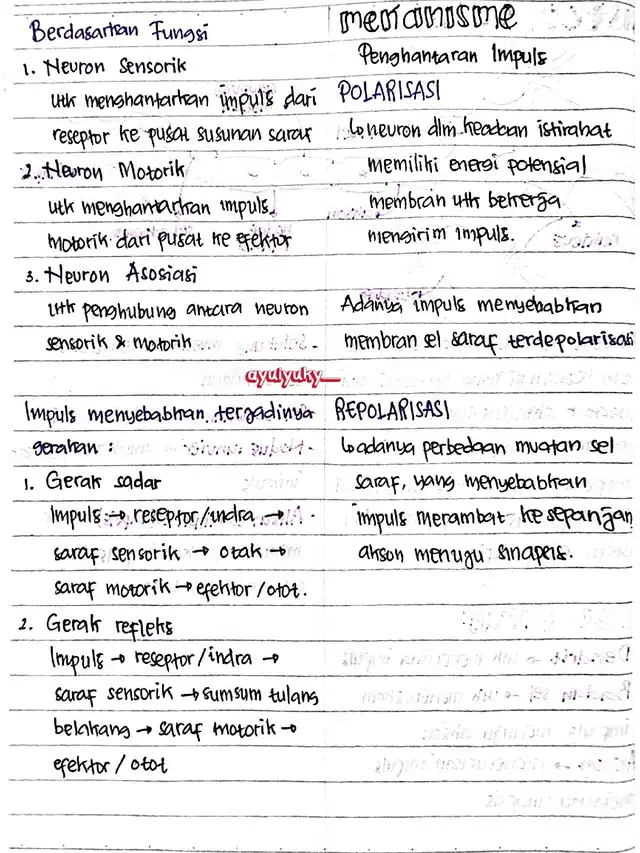 Berdasarkan Fungsi
1. Neuron Sensorik
utk menghantarkan impuls dari
reseptor ke pusat susunan saraf
2. Neuron Motorik
utk menghantarkan impuls
motorik dari pusat ke efektor
3. Neuron Asosiasi
utk penghubung antara neuron
sensorik & motorik
ayulyuky__
Impuls menyebabkan terjadinya
gerakan :
1. Gerak sadar
Impuls → reseptor/indra →
saraf sensorik → otak →
saraf motorik → efektor/otot.
2. Gerak refleks
Impuls → reseptor/indra →
saraf sensorik → sumsum tulang
belakang → saraf motorik →
efektor/otot
mekanisme
Penghantaran Impuls
POLARISASI
↳ neuron dlm keadaan istirahat
memiliki energi potensial
membran utk bekerja
mengirim impuls.
Adanya impuls menyebabkan
membran sel saraf terdepolarisasi
REPOLARISASI
↳ adanya perbedaan muatan sel
saraf, yang menyebabkan
impuls merambat ke sepanjan
akson menuju sinapsis.